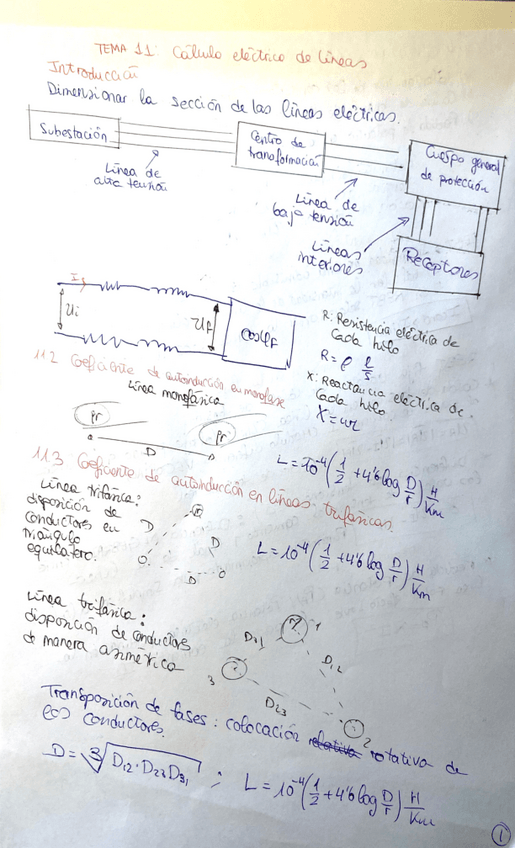 TEMA 11: Cálculo eléctrico de líneas
Introducción
Dimensionar la sección de las líneas eléctricas.
Subestación
Centro de
transformación
Cuerpo general
de protección
Línea de
alta tensión
Línea de
baja tensión
Líneas
interiores
Receptores
I
Ui
Uf
cosφf
R: Resistencia eléctrica de
cada hilo
R = ρ l/s
X: Reactancia eléctrica de
cada hilo.
X = ωL
11.2 Coeficiente de autoinducción en monofase
Línea monofásica
Pr
Pr
D
L = 10^-4 (1/2 + 4'6 log D/r) H/Km
11.3 Coeficiente de autoinducción en líneas trifásicas.
Línea trifásica:
disposición de
conductores en
triángulo
equilatero.
D
D
D
L = 10^-4 (1/2 + 4'6 log D/r) H/Km
Línea trifásica:
disposición de conductores
de manera asimétrica
1
D31
D12
3
D23
2
Transposición de fases: colocación rotativa de
los conductores.
D = ∛D12·D23·D31 ; L = 10^-4 (1/2 + 4'6 log D/r) H/Km
1